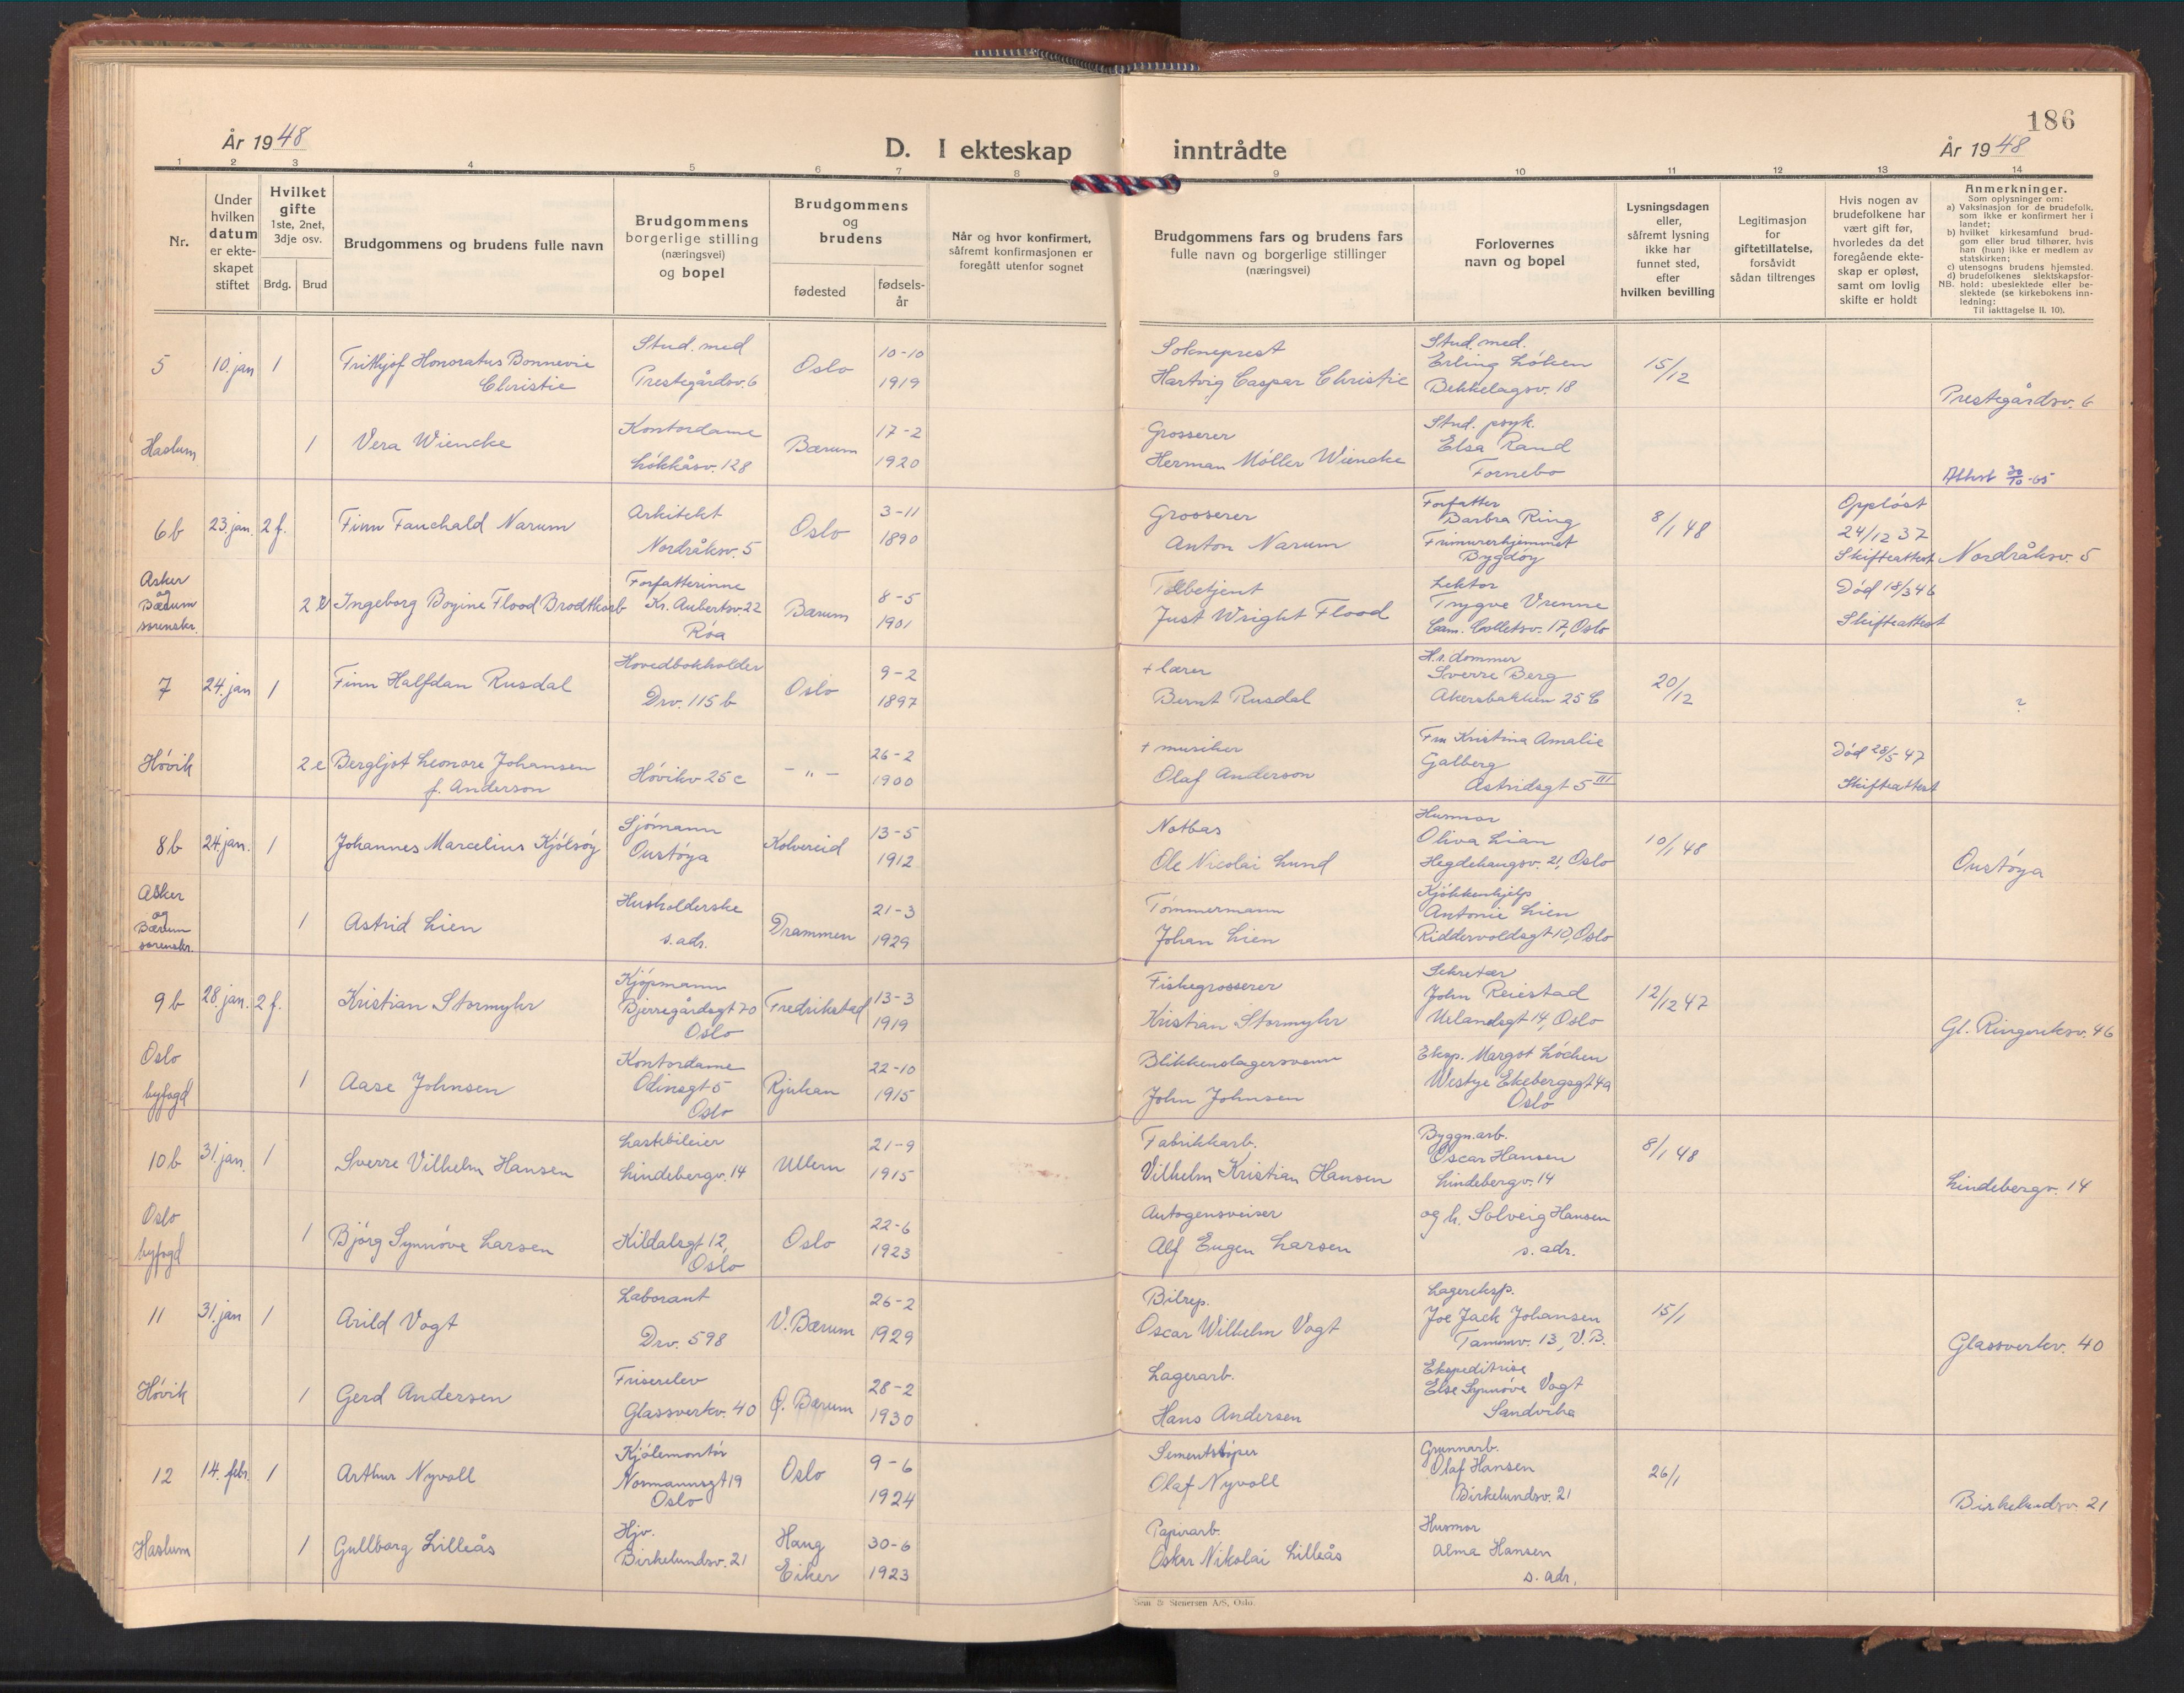 186
År 1948
D. I ekteskap inntrådte
År 1948
1 2 3 4 5 6 7 8 9 10 11 12 13 14
Nr.
Under hvilken datum er ekte-skapet stiftet
Hvilket gifte 1ste, 2net, 3dje osv.
Brdg. Brud
Brudgommens og brudens fulle navn
Brudgommens borgerlige stilling (næringsvei) og bopel
Brudgommens og brudens
fødested
fødsels-år
Når og hvor konfirmert, såfremt konfirmasjonen er foregått utenfor sognet
Brudgommens fars og brudens fars fulle navn og borgerlige stillinger (næringsvei)
Forlovernes navn og bopel
Lysningsdagen eller, såfremt lysning ikke har funnet sted, efter hvilken bevilling
Legitimasjon for giftetillatelse, forsåvidt sådan tiltrenges
Hvis nogen av brudefolkene har vært gift før, hvorledes da det foregående ekte-skap er opløst, samt om lovlig skifte er holdt
Anmerkninger.
Som oplysninger om:
a) Vaksinasjon for de brudefolk, som ikke er konfirmert her i landet;
b) hvilket kirkesamfund brud-gom eller brud tilhører, hvis han (hun) ikke er medlem av statskirken;
c) utensogns brudens hjemsted.
d) brudefolkenes slektskapsfor-hold: ubeslektede eller be-slektede (se kirkebokens inn-ledning:
NB.
Til iakttagelse II. 10).
5 10. jan 1 Frithjof Honoratus Bonnevie Christie
Stud. med Prestegårdsv. 6
Oslo 10-10 1919
Sokneprest Hartvig Caspar Christie
Stud. med. Erling Löken Bekkelagsv. 18
15/12
Prestegårdsv. 6
Haslum 1 Vera Wiencke
Kontordame Lökkåsv. 128
Bærum 17-2 1920
Grosserer Herman Möller Wiencke
Stud. psyk. Elsa Rand Fornebo
Attest 30/10-65
6b 23. jan. 2 f. Finn Fauchald Narum
Arkitekt Nordråksv. 5
Oslo 3-11 1890
Grosserer Anton Narum
Forfatter Barbra Ring Frimurerhjemmet Bygdöy
8/1 48
Oppløst 24/12 37 Skifteattest
Nordråksv. 5
Asker og Bærum sorenskr. 2 Ingeborg Boyine Flood Brodtkorb
Forfatterinne Kr. Aubertsv. 22 Röa
Bærum 8-5 1901
Tolbetjent Just Wright Flood
Lektor Trygve Vrenne Cam. Colletsv. 17, Oslo
Död 18/3 46 Skifteattest
7 24. jan 1 Finn Halfdan Rusdal
Hovedbokholder Drv. 115 b
Oslo 9-2 1897
+ lærer Bernt Rusdal
H.r. dommer Sverre Berg Akersbakken 25 C
20/12
?
Hövik 2 e Bergljot Leonore Johansen f. Anderson
Hövikv 25 c
- " - 26-2 1900
+ musiker Olaf Anderson
Fru Kristina Amalie Galberg Astridsgt 5 III
Död 28/5 47 Skifteattest
8b 24. jan. 1 Johannes Marcelius Kjölsöy
Sjömann Oustöya
Kolvereid 13-5 1912
Notbas Ole Nicolai Lund
Husmor Oliva Lian Hegdehaugsv. 21, Oslo
10/1 48
Oustöya
Asker og Bærum sorenskr. 1 Astrid Lien
Husholderske s. adr.
Drammen 21-3 1929
Tömmermann Johan Lien
Kjökkenhjelp Antonie Lien Riddervoldsgt 10, Oslo
9 b 28. jan. 2 f. Kristian Stormyhr
Kjöpmann Bjerregårdsgt 70 Oslo
Fredrikstad 13-3 1919
Fiskegrosserer Kristian Stormyhr
Sekretær John Reiestad Uelandsgt 14, Oslo
12/12 47
Gl. Ringeriksv. 46
Oslo byfogd 1 Aase Johnsen
Kontordame Odinsgt 5 Oslo
Rjukan 22-10 1915
Blikkenslagersvenn John Johnsen
Eksp. Margot Löchen Westye Ekebergsgt 4a Oslo
10b 31. jan. 1 Sverre Vilhelm Hansen
Lastebileier Lindebergv. 14
Ullern 21-9 1915
Fabrikkarb. Vilhelm Kristian Hansen
Byggn.arb. Oscar Hansen Lindebergv. 14
8/1 48
Lindebergv. 14
Oslo byfogd 1 Björg Synnöve Larsen
Kildalsgt 12, Oslo
Oslo 22-6 1923
Autogensveiser Alf Eugen Larsen
og h. Solveig Hansen s. adr.
11 31. jan 1 Arild Vogt
Laborant Drv. 598
V. Bærum 26-2 1929
Bilrep. Oscar Wilhelm Vogt
Lagereksp. Joe Jack Johansen Tanumv. 13, V.B.
15/1
Glassverkv. 40
Hövik 1 Gerd Andersen
Friserelev Glassverkv. 40
Ö. Bærum 28-2 1930
Lagerarb. Hans Andersen
Ekspeditrise Else Synnöve Vogt Sandvika
12 14. febr. 1 Arthur Nyvoll
Kjölemontör Normannsgt 19 Oslo
Oslo 9-6 1924
Sementstöper Olaf Nyvoll
Grunnarb. Olaf Hansen Birkelundsv. 21
26/1
Birkelundsv. 21
Haslum 1 Gullborg Lilleås
Hjv. Birkelundsv. 21
Haug Eiker 30-6 1923
Papirarb. Oskar Nikolai Lilleås
Husmor Alma Hansen s. adr.
Sem & Stenersen A/S, Oslo.